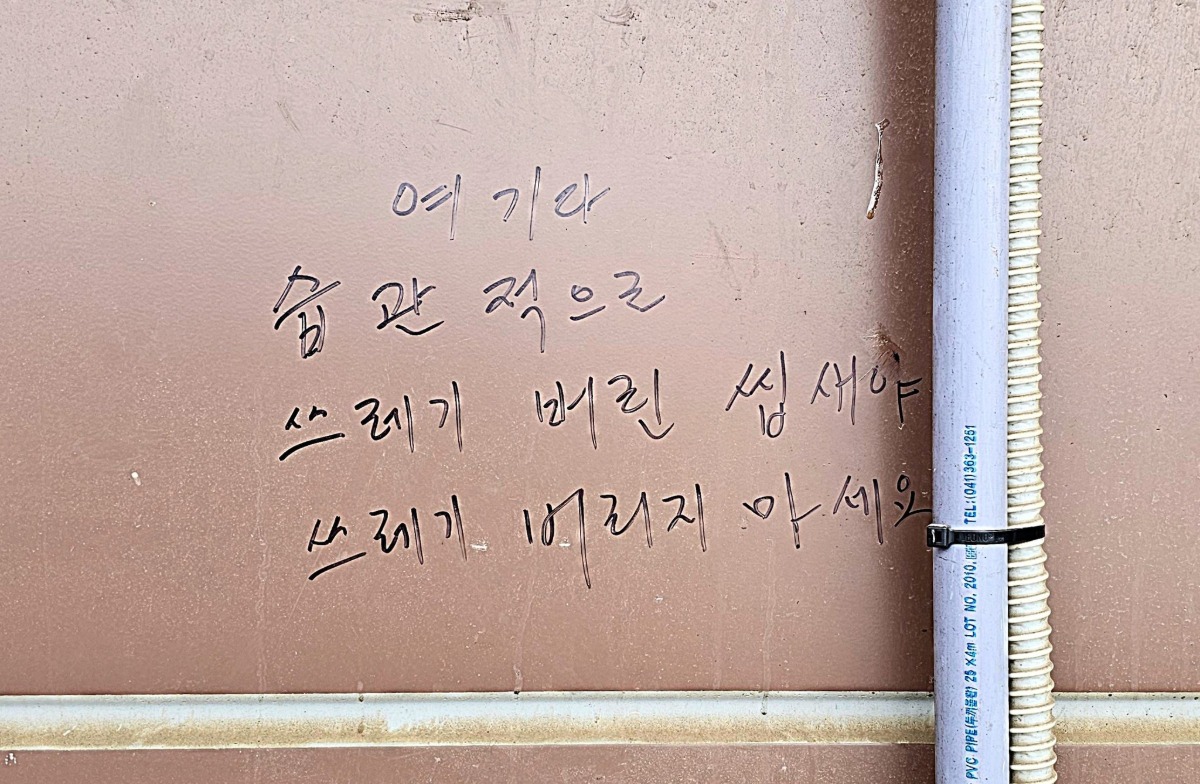 여기다
습관적으로
쓰레기 버린 씹새야
쓰레기 버리지 마세요
PVC PIPE(두께불문) 25 X4m LOT NO. 2010. TEL:(041)363-1251